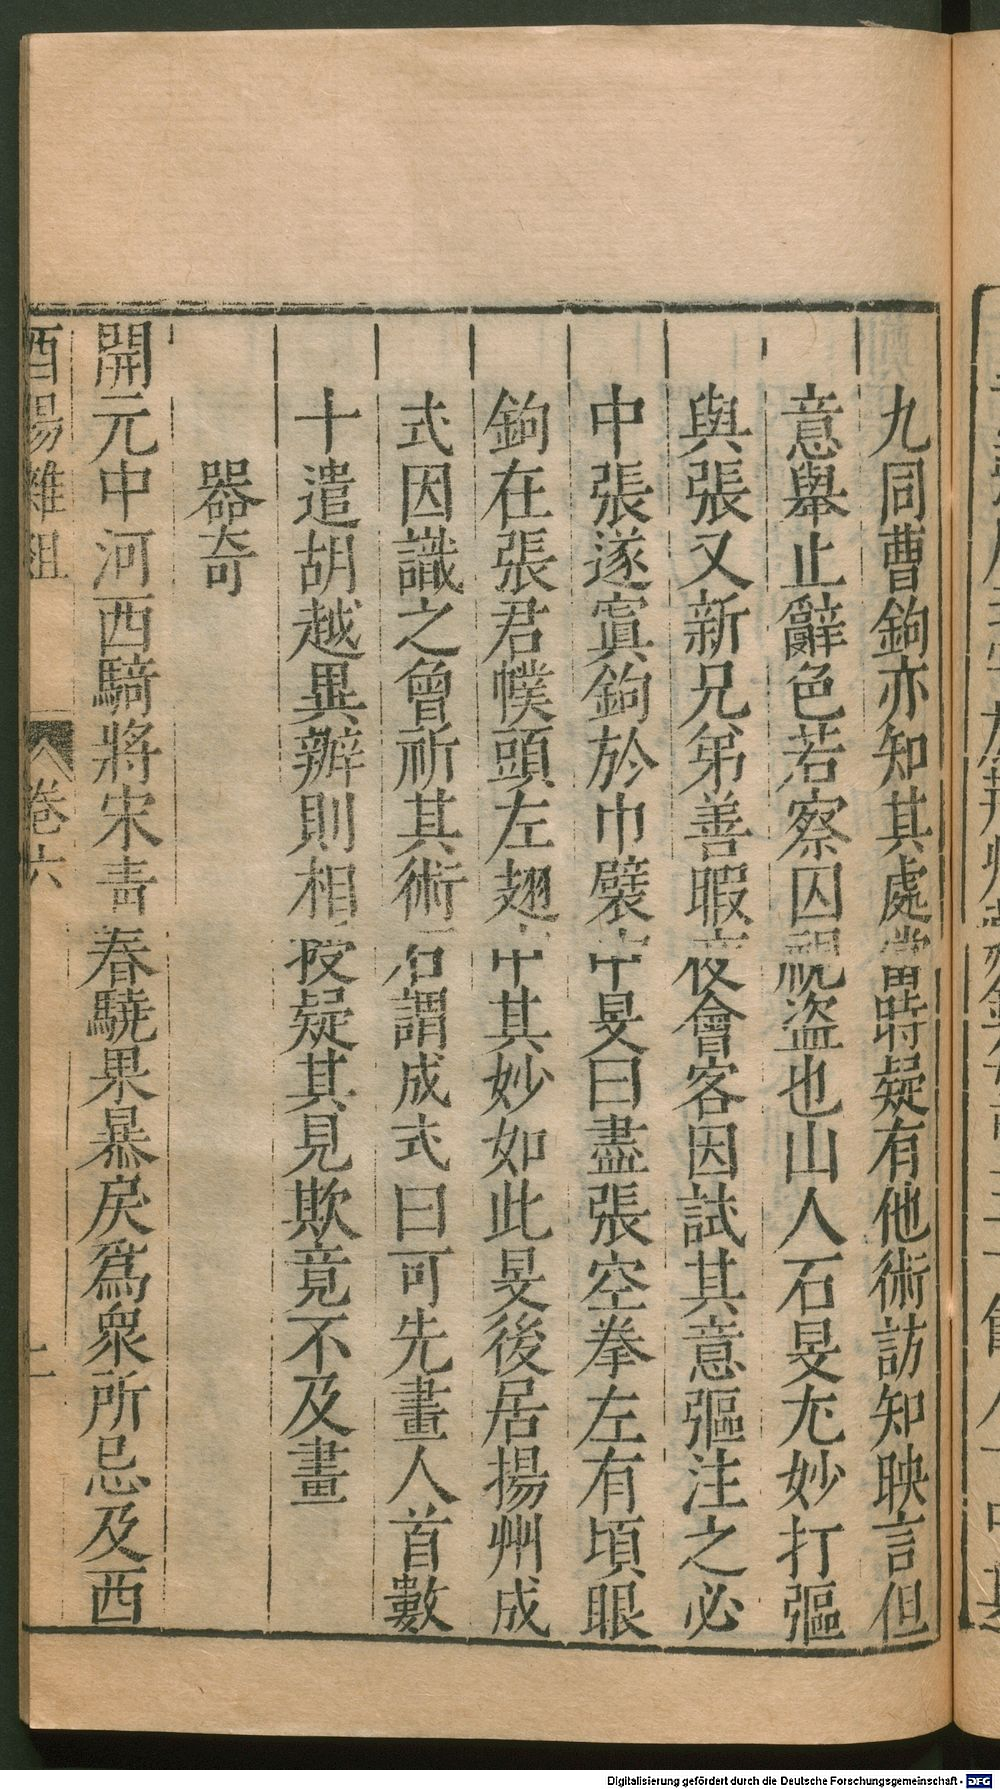 九同曹鉤亦知其處當時疑有他術訪知映言但
意舉止辭色若察囚視盜也山人石旻尤妙打彄
與張又新兄弟善暇夜會客因試其意彄注之必
中張遂寘鉤於巾襞中旻曰盡張空拳左右有頃眼
鉤在張君幞頭左翅中其妙如此旻後居揚州成
式因識之曾祈其術石謂成式曰可先畫人首數
十遣胡越異辨則相授疑其見欺竟不及畫
器奇
開元中河西騎將宋青春驍果暴戾爲衆所忌及西
酉陽雜俎 卷六
Digitalisierung gefördert durch die Deutsche Forschungsgemeinschaft - DFG